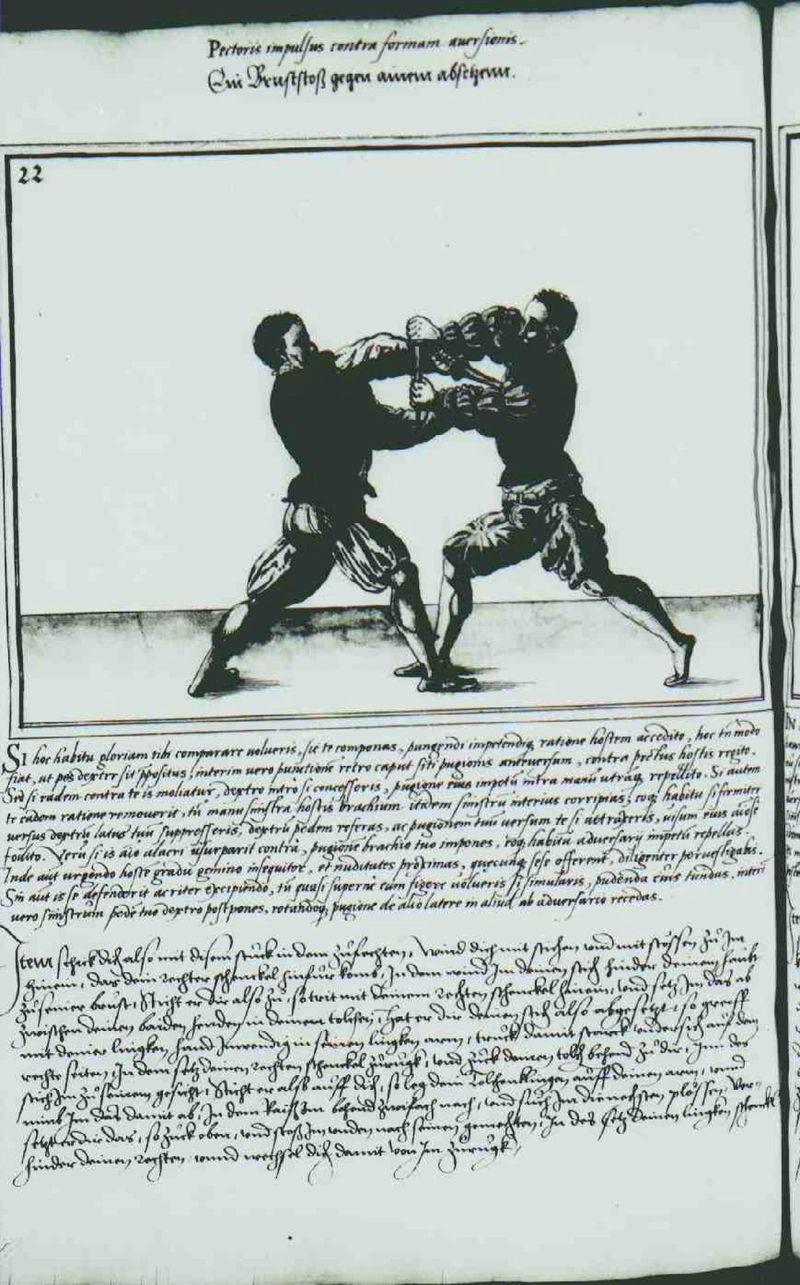 Pectoris impulsus contra formam aversionis.
Ein Bruststoß gegen ainem absetzenn.
22
SI hoc habitu gloriam tibi comparare volueris, sic te componas, pungendi impetendiq, ratione hostem accedito, hoc tn modo
fiat, ut pes dexter sit ppositus, interim vero punctione retro caput siti pugionis anteversum, contra pectus hostis regito.
Sed si eadem contra te is moliatur, dextro intro si concesseris, pugione eius impetū intra manū utraq, repellito. Si autem
te eadem ratione removerit, tū manu sinistra hostis brachium itidem sinistrū interius corripias, eoq, habitu si firmiter
versus dextrū latus tuū suppresseris, dextrū pedem referas, ac pugionem tuū versum te si attraxeris, visum eius
fodito. Verū si is aīo alacri usurparit contrà, pugione brachio tuo impones, eoq, habitu adversarij impetū repellas.
Inde aut urgendo hoste gradu gemino insequitor, et nuditates proximas, quecunq, sese offerent, diligenter pervestigabis.
Sin aut is se defenderit acriter excipiendo, tū quasi superne eum figere volueris si simularis, pudenda eius tundas, interi
vero sinistrum pedē tuo dextro postpones, rotandoq, pugione de alio latere in aliud ab adversario recedas.
Item schick dich also mit disem stuck in dem zufechten, Wind dich mit stichen vnnd mit stössen zu Im
hinein, das dein rechter schenckel hinfür kom, In dem wind Im deinen stich hinder deinem haubt
zu seiner brust, Sticht er dir also zu, so trit mit deinem rechten schenckel hinein, vnd setz Im das ab
zwischen deinen baiden henden in deinem tolchen, Hat er dir deinen stich also abgesetzt, so greiff
mit deiner lingken hand Inwendig in seinen lingken arm, truck damit starck vndersich auf dein
rechte seiten, In dem setz deinen rechten schenckel zurugk, vnd zuck deinen tolch behend zu dir, Inn des
stich Im zu seinem gesicht, Sticht er also auff dich, so leg dein Tolchenklingen auff deinen arm, vnnd
nimb Im das damit ab, In dem Raiß Im behend zwifach nach, vnd such Im die nechsten plössen, Ver-
setzt er dir das, so zuck oben, vnd stoß Im vnden nach seinen gemechten, In des setz deinen lingken schenckl
hinder deinen rechten vnnd wechsel dich damit von Im zurugk